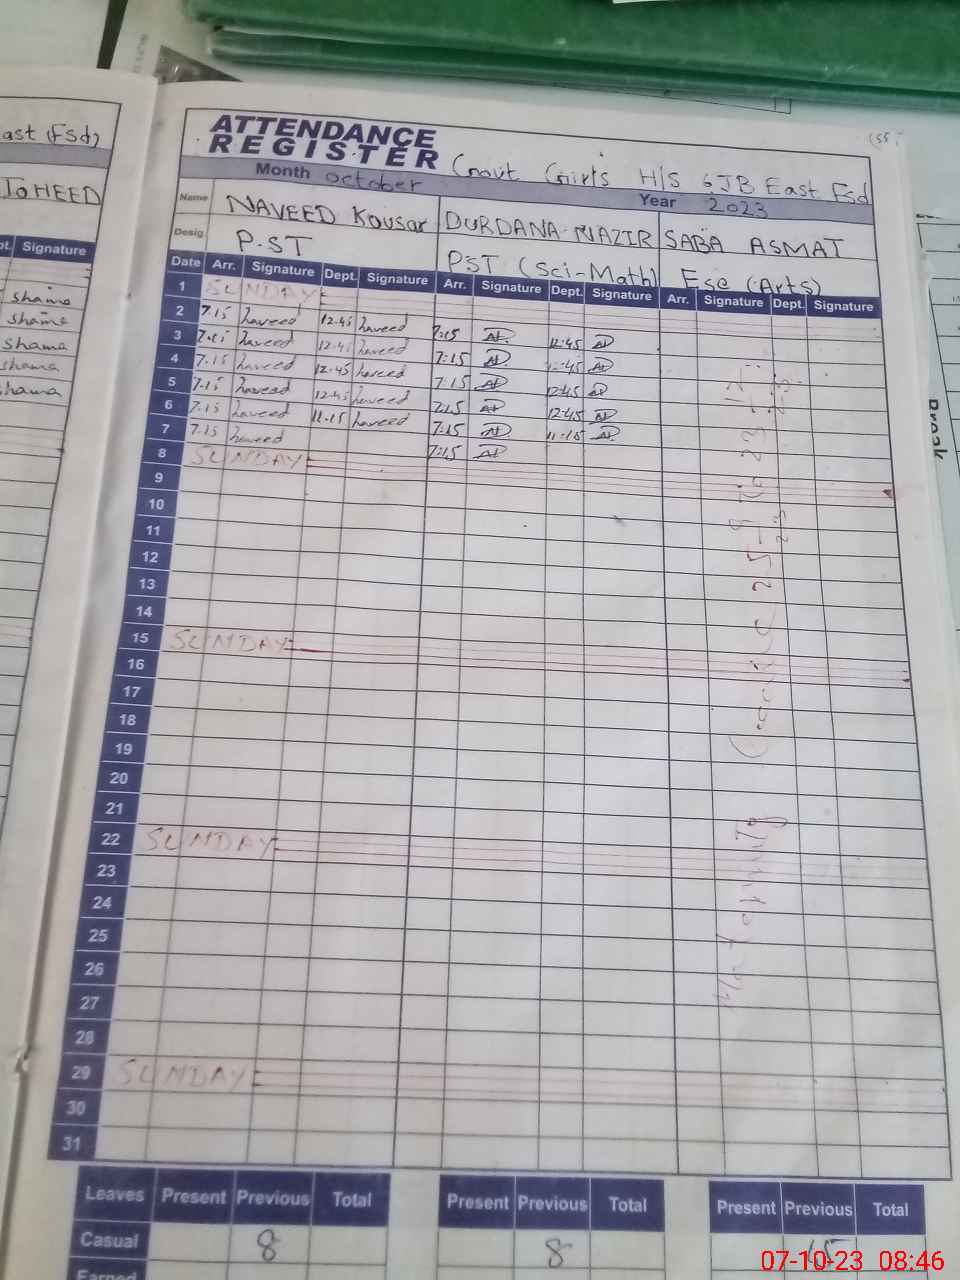 ast (Fsd)
ToHEED
Signature
shama
shama
shama
shama
shama
ATTENDANCE
REGISTER
Govt Girls H/S 6JB East Fsd
Month october Year 2023
Name NAVEED Kousar DURDANA NAZIR SABA ASMAT
Desig. P.ST PST (Sci-Math) Ese (Arts)
Date Arr. Signature Dept. Signature Arr. Signature Dept. Signature Arr. Signature Dept. Signature
1 SUNDAY
2 7.15 naveed 12.45 naveed 7:15 12:45
3 7.15 naveed 12.45 naveed 7:15 12:45
4 7.15 naveed 12.45 naveed 7:15 12:45
5 7.15 naveed 12.45 naveed 7:15 12:45
6 7.15 naveed 11.15 naveed 7:15 11:15
7 7.15 naveed 7:15
8 SUNDAY
9
10
11
12
13
14
15 SUNDAY
16
17
18
19
20
21
22 SUNDAY
23
24
25
26
27
28
29 SUNDAY
30
31
Maternity
Leaves Present Previous Total Present Previous Total Present Previous Total
Casual 8 8 15
Earned
Break
07-10-23 08:46